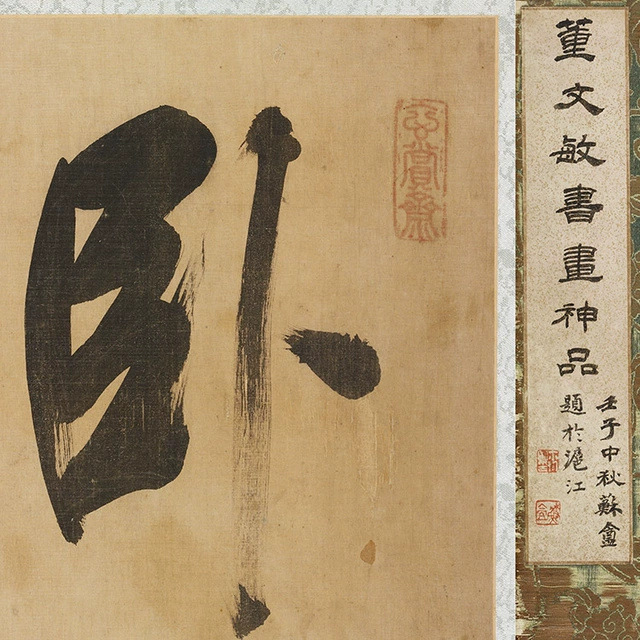 董文敏書畫神品
壬子中秋蘇盦
題於滬江
玄賞齋
卧